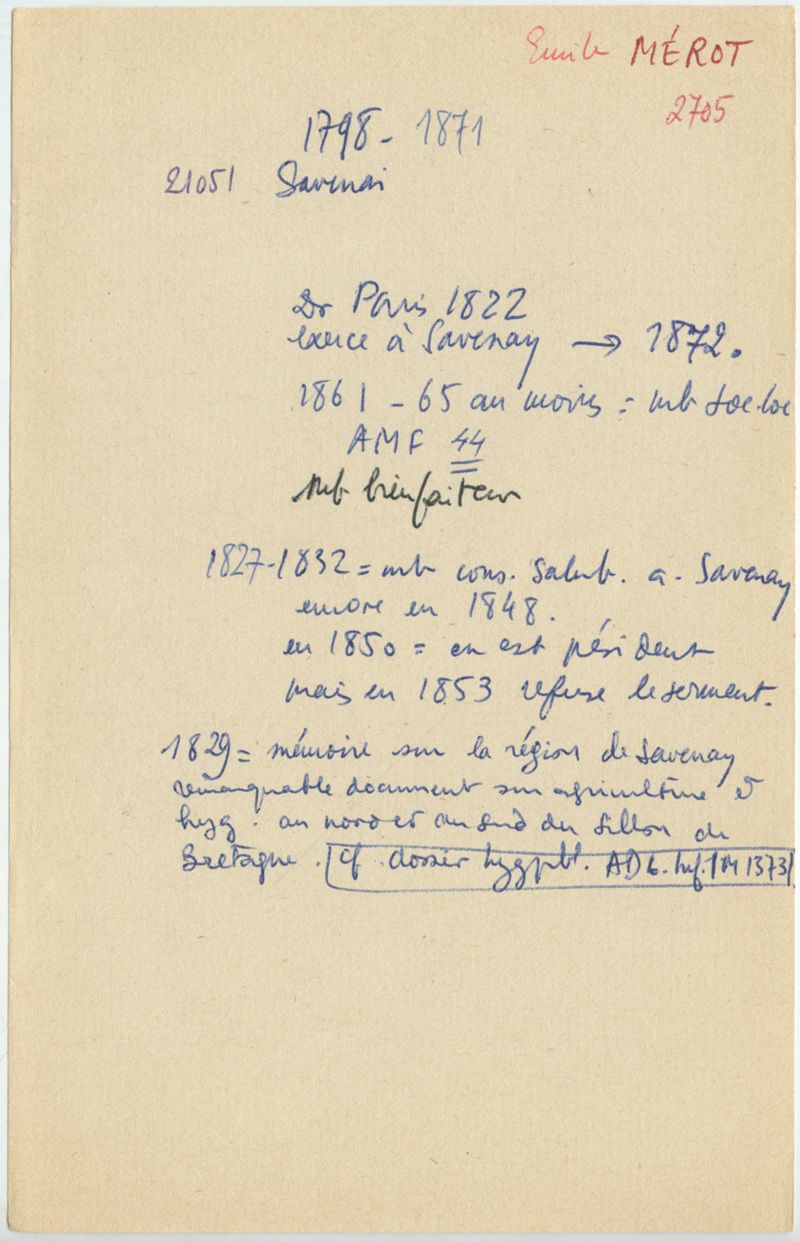 Emile MÉROT
2705
1798 - 1871
21051 Savenai
Dr Paris 1822
exerce à Savenay → 1872.
1861 - 65 au moins = mb soc. loc
AMF 44
mb bienfaiteur
1827-1832 = mb cons. Salub. a. Savenay
encore en 1848.
en 1850 = en est président
mais en 1853 refuse le serment.
1829 = mémoire sur la région de Savenay
remarquable document sur agriculture et
hyg. au nord et au sud du Sillon de
Bretagne. cf. dossier hyg pbl. AD L. Inf. 1M 1373